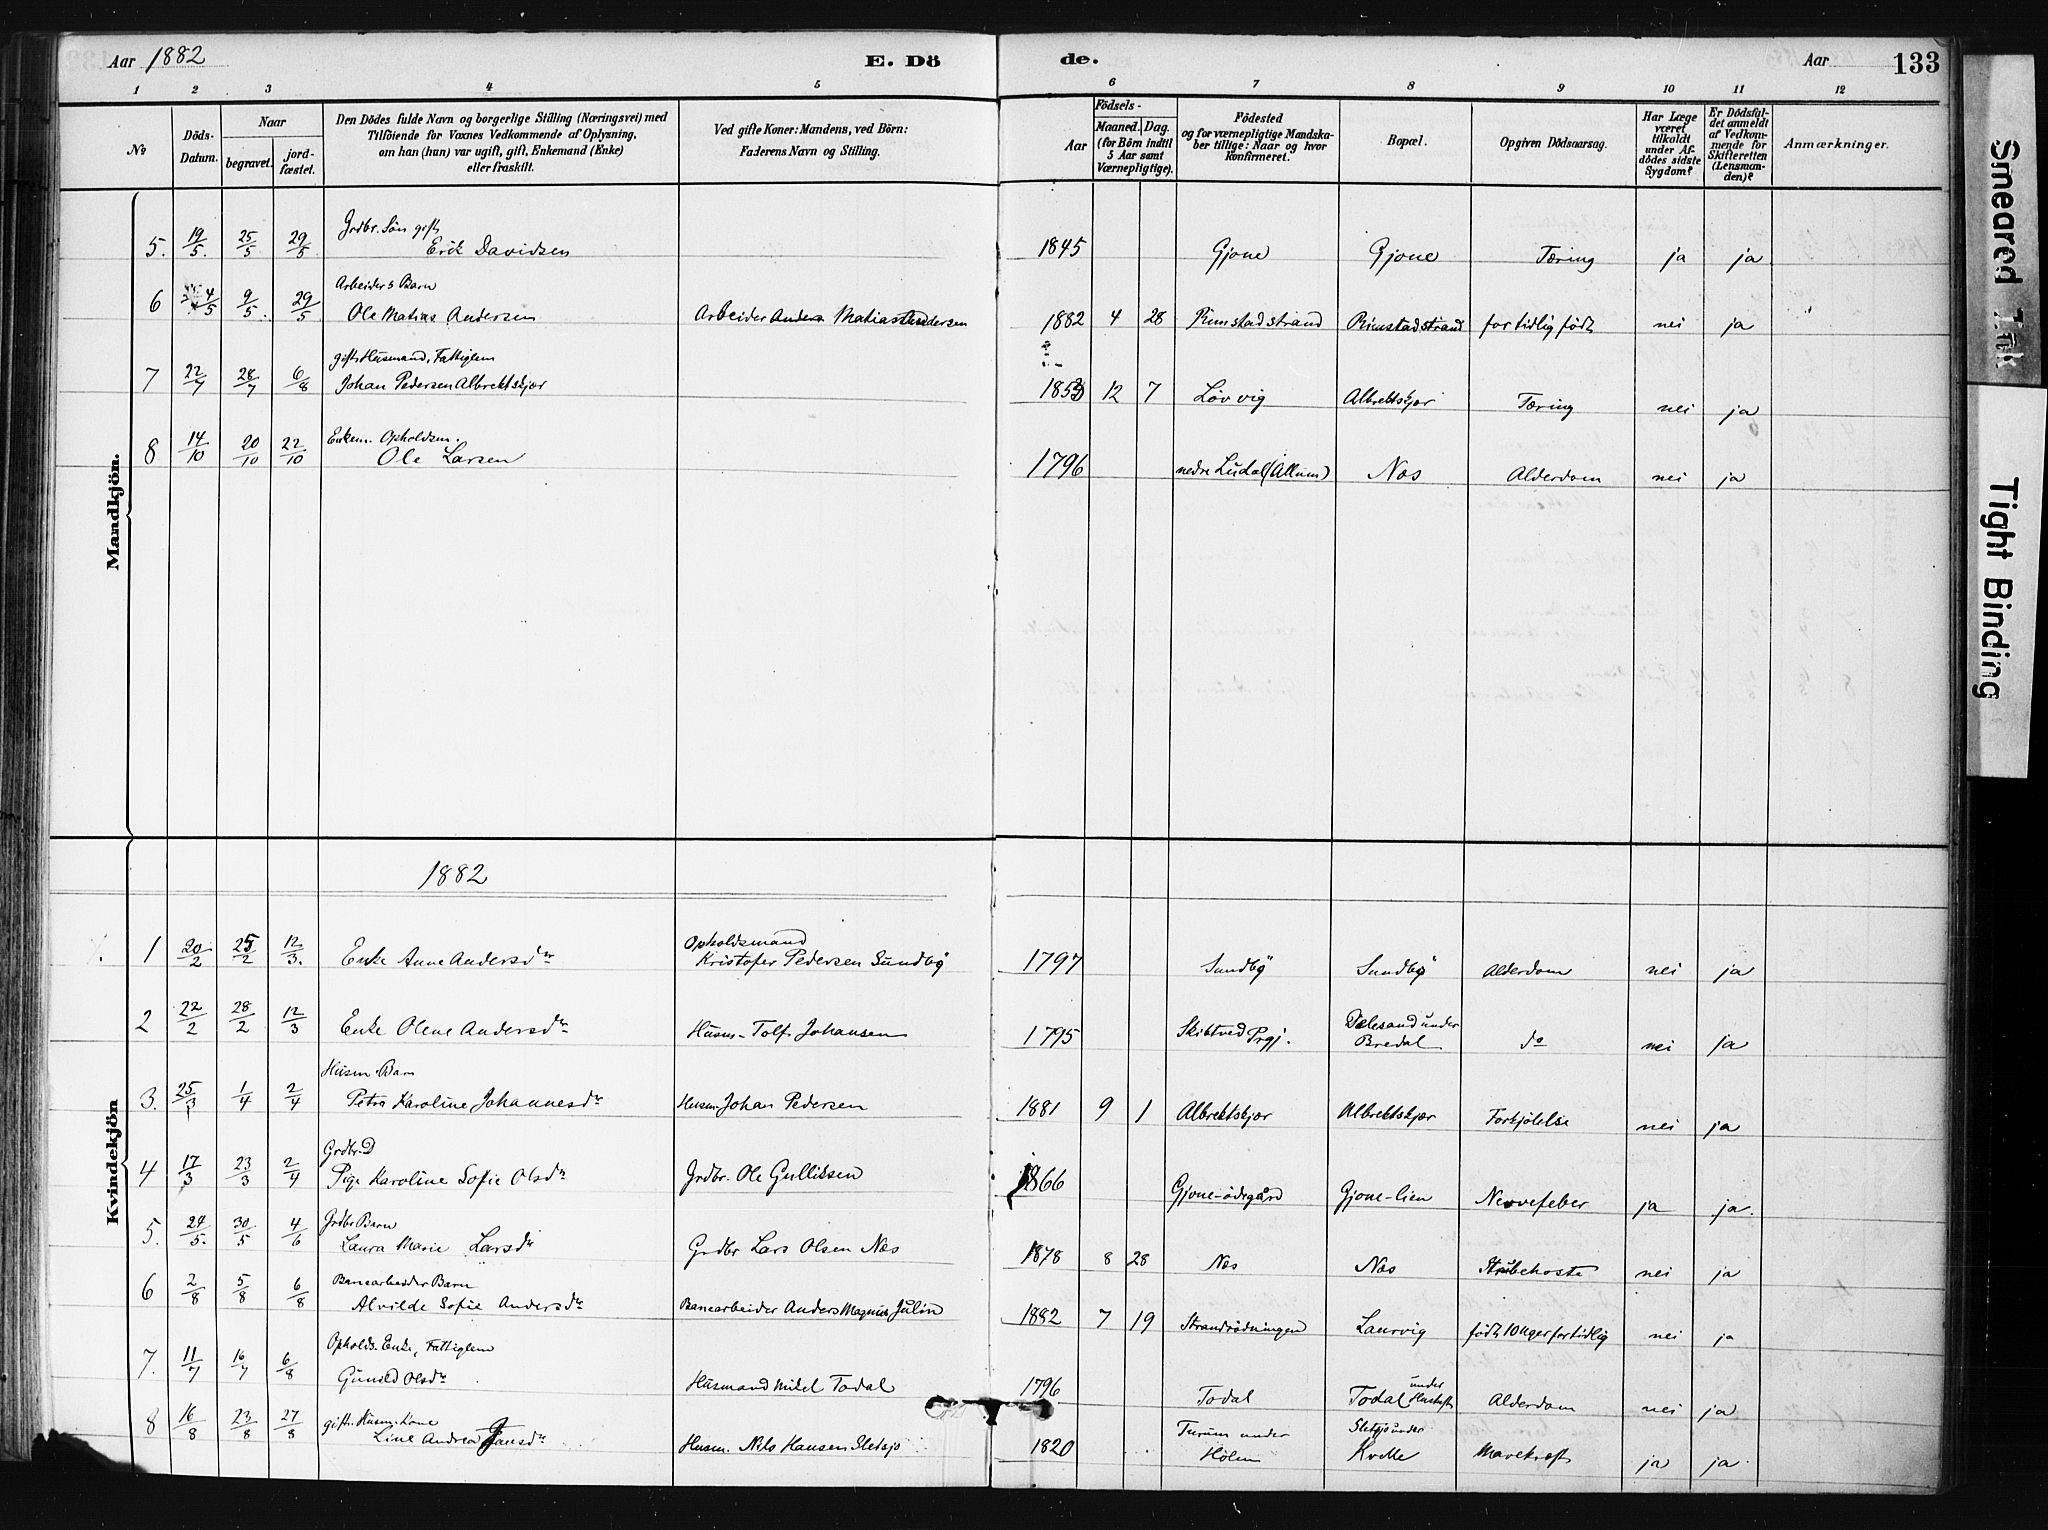 Aar 1882 E. Dö de. Aar 133
1 2 3 4 5 6 7 8 9 10 11 12
No Döds-Datum. Naar begravet. jordfæstet. Den Dödes fulde Navn og borgerlige Stilling (Næringsvei) med Tilföiende for Voxnes Vedkommende af Oplysning, om han (hun) var ugift, gift, Enkemand (Enke) eller fraskilt. Ved gifte Koner: Mandens, ved Börn: Faderens Navn og Stilling. Aar Födsels- Maaned. Dag. (for Börn indtil 5 Aar samt Værnepligtige). Födested og for værnepligtige Mandskaber tillige: Naar og hvor Konfirmeret. Bopæl. Opgiven Dödsaarsag. Har Læge været tilkaldt under Afdödes sidste Sygdom? Er Dödsfaldet anmeldt af Vedkommende for Skifteretten (Lensmanden)? Anmærkninger.
Smeared Ink
Tight Binding
Mandkjön.
Grdbr. Søn gift
5. 19/5. 25/5 29/5 Erik Davidsen 1845 Gjone Gjone Tæring ja ja
Arbeiders Barn
6 4/5 9/5. 29/5 Ole Matias Andersen Arbeider Anders Matias Andersen 1882 4 28 Rimstadstrand Rimstadstrand for tidlig født nei ja
gift Husmand, Fattiglem
7 22/7 28/7 6/8 Johan Pedersen Albrektskjær 1853 12 7 Løvvig Albrektskjær Tæring nei ja
Enkem. Opholdsm.
8 14/10 20/10 22/10 Ole Larsen 1796 nedre Ludal (Allum) Næs Alderdom nei ja
Kvindekjön
1882
Opholdsmand
1 20/2 25/2 12/3. Enke Anne Andersdtr Kristofer Pedersen Sundby 1797 Sundby Sundby Alderdom nei ja
2 22/2 28/2 12/3 Enke Olene Andersdtr Husm. Tolf. Johansen 1795 Skibtved Prgj. under Bredal do nei ja
Husm. Barn
3. 25/3 1/4 2/4 Petra Karoline Johannesdtr Husm. Johan Pedersen 1881 9 1 Albrektskjær Albrektskjær Forkjølelse nei ja
Grdbr. D
4 17/3 23/3 2/4 Pige Karoline Sofie Olsdtr Grdbr. Ole Gulliksen 1866 Gjone-ødegård Gjone-lien Nervefeber ja ja.
Grdbr Barn
5. 24/5. 30/5 4/6 Laura Marie Larsdtr Grdbr Lars Olsen Næs 1878 8 28 Næs Næs Strubehoste nei ja
Banearbeider Barn
6 2/8 5/8 6/8 Alvilde Sofie Andersdtr Banearbeider Anders Magnus Julin 1882 7 19 Strandrødningen Laurvig født 10 Uger for tidlig nei ja
Opholds. Enke, Fattiglem
7. 11/7 16/7 6/8 Gunild Olsdtr Husmand Mikel Todal 1796 Todal Todal under Alderdom nei ja
gift. Husm. Kone
8 16/8 23/8 27/8 Line Andrea Jansdtr Husm. Nils Hansen Sletsjø 1820 Furum under Holm Sletsjø under Kvelle Mavekræft ja ja